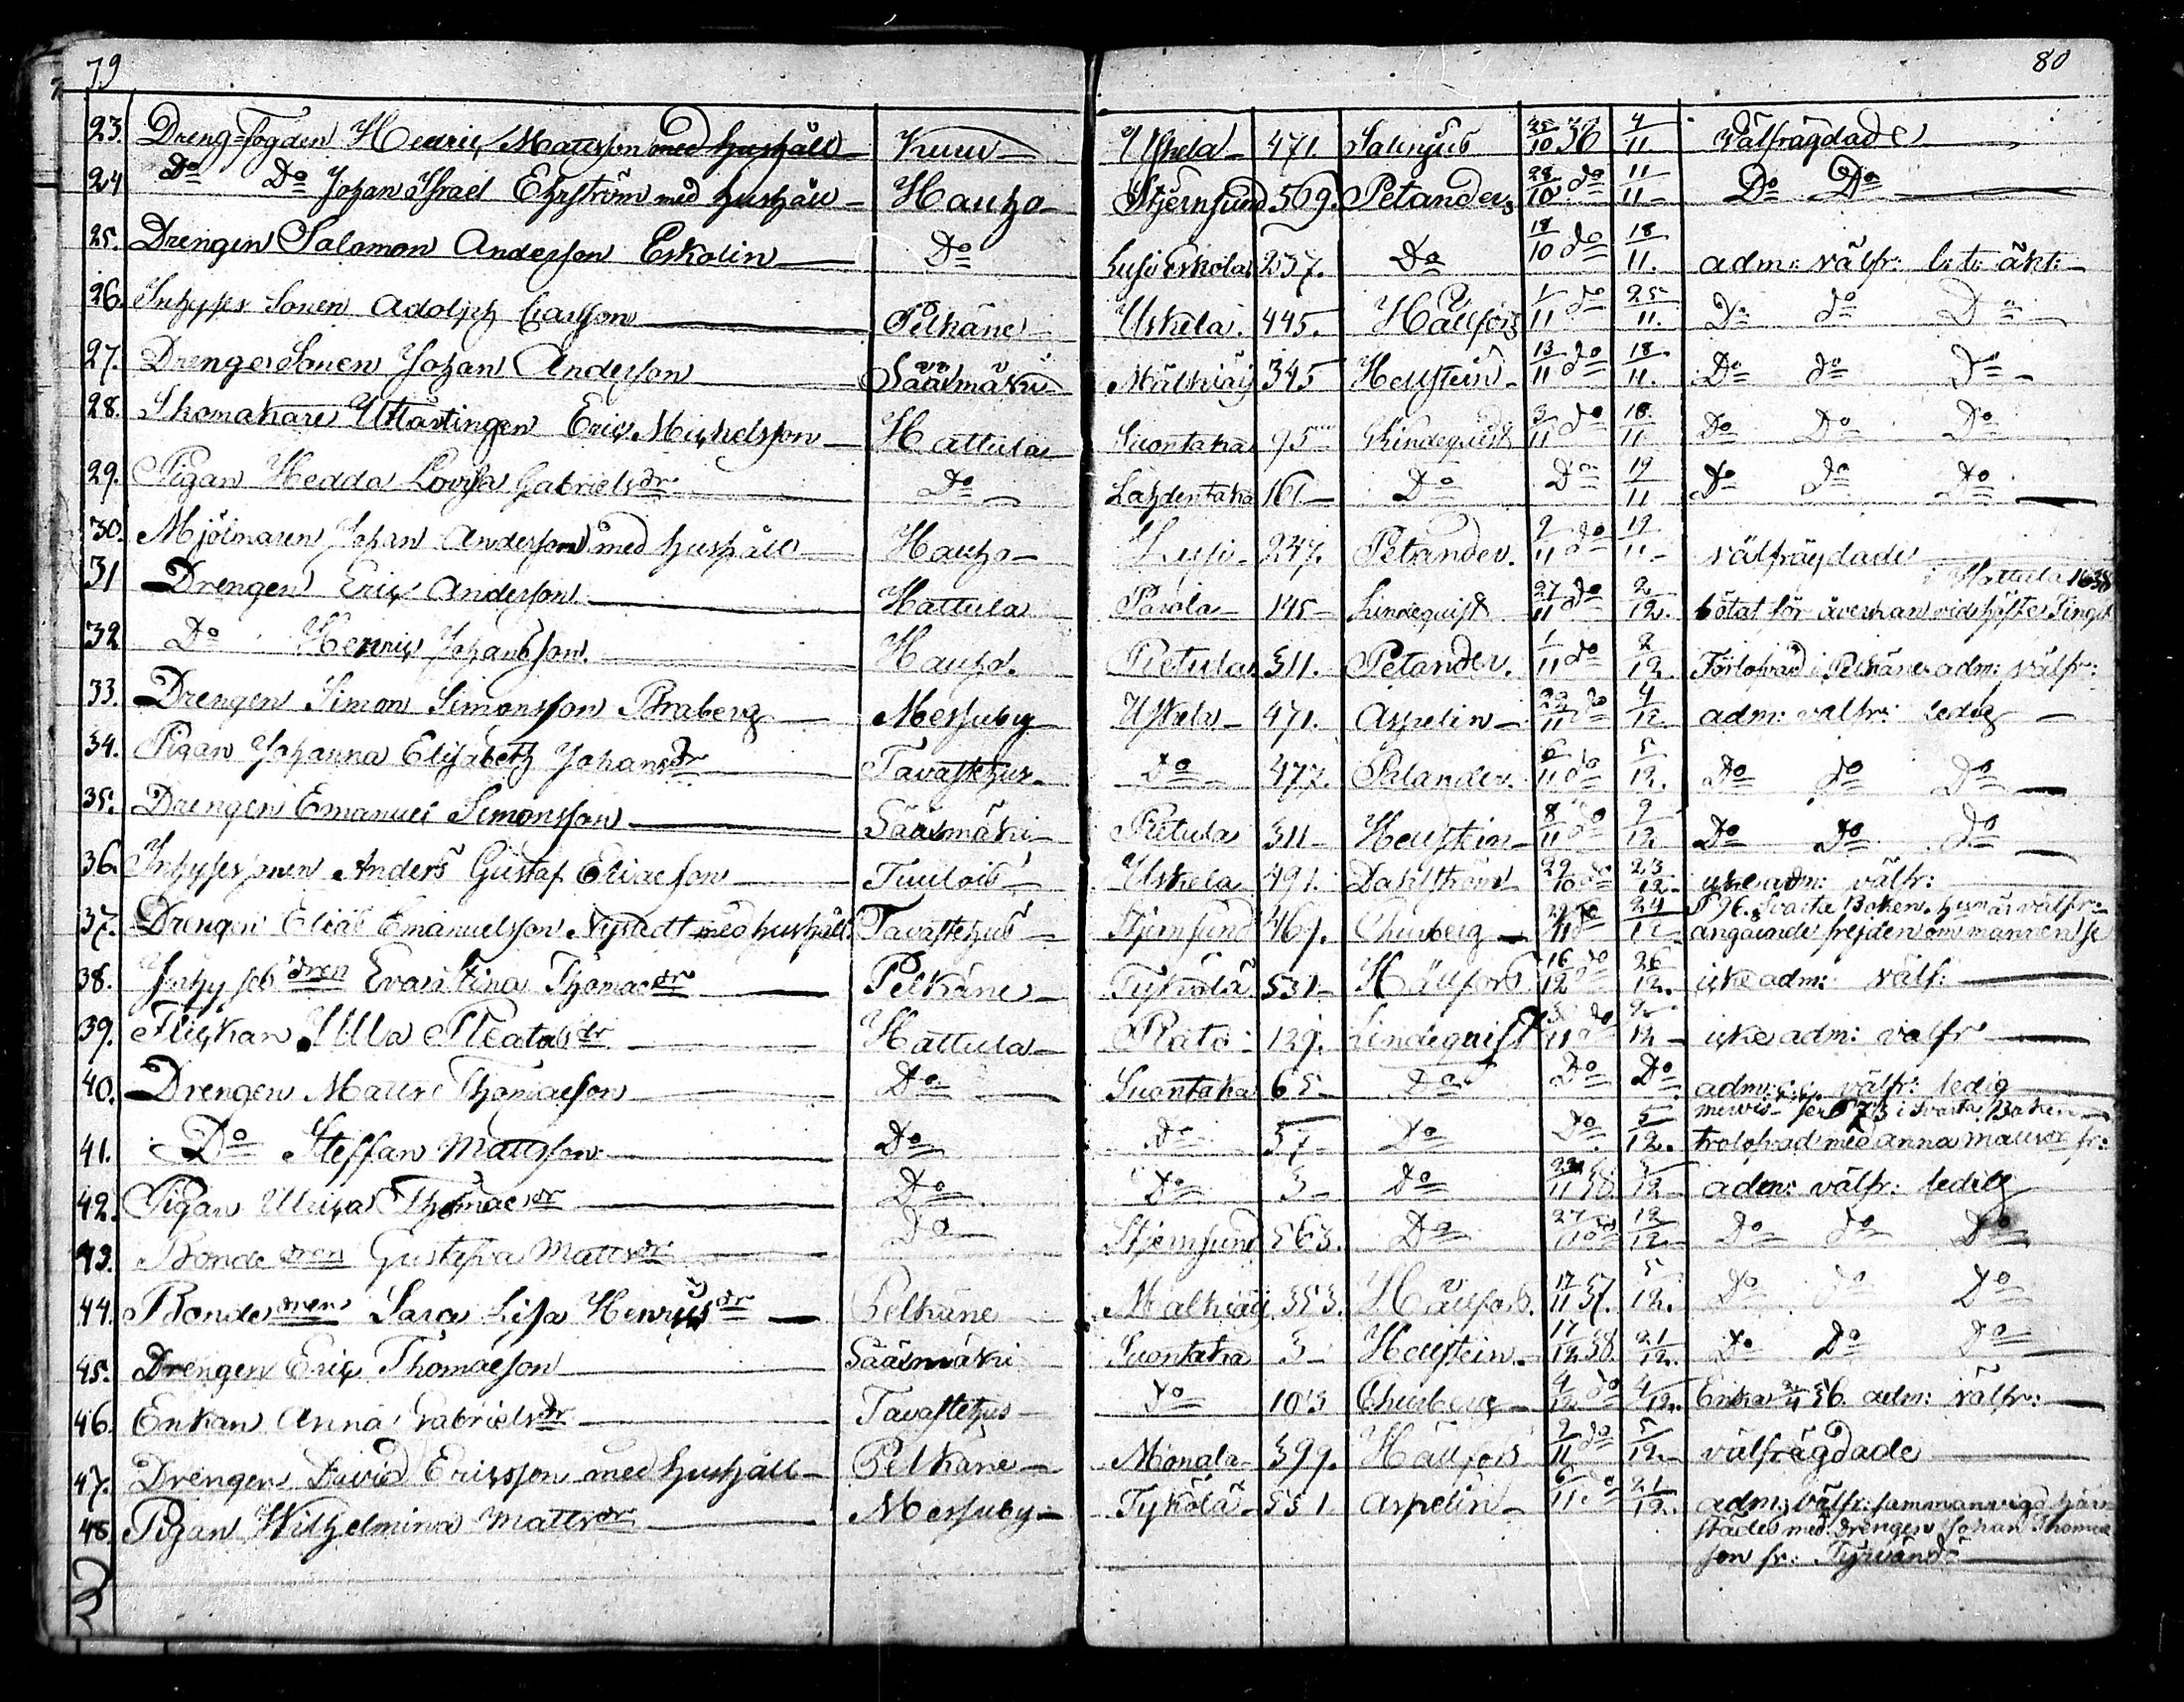 79
80
23. Dreng=fogden Hedric Mattsson med hushåll Kuru Uskela 471. 25/10 36 4/11 välfrägdade
24 Do Do Johan Israel Ehrström med hushåll Hauho Stjernsund 509. Petander 28/10 do 11/11 Do Do
25. Drengen Salomon Andersson Eskolin Do Lusi Eskola 237. Do 18/10 do 18/11. adm: välfr: l: t: äkt:
26. Inhyses Sonen Adolph Pelkäne Uskela. 445. Hällfors 1/11 do 25/11. Do do Do
27. Drenge Sonen Johan Andersson Sääxmäki 345 Hellstein 13/11 do 18/11. Do do Do
28. Skomakare Eric Michelsson Hattula Suontaka 95 Lindequist 3/11 do 18/11 Do Do Do
29. Pigan Hedda Lovisa Gabrielsdr Do Lahdentaka 161 Do Do 19/11 Do do Do
30. Mjölnaren Johan Andersson med hushåll Hauho Lusi 247. Petander. 9/11 do 19/11 välfrägdade
31 Drengen Eric Andersson Hattula Parola 145 Lindequist 27/11 do 2/12. i Hattula 1838 bötat för åverkan vid höste Tinget
32 Do Henric Johansson. Hauho. Pietula 311. Petander. 1/11 do 2/12 Förlofvad i Pelkäne adm: välfr:
33. Drengen Simon Simonsson Braberg Messuby Uskela 471. Aspelin 29/11 do 4/12 adm: välfr: ledig
34. Pigan Johanna Elisabeth Johansdr Tavastehus Do 477. Palander. 6/11 do 5/12. Do do Do
35. Drengen Emanuel Simonsson Sääxmäki Pietula 311 Hellstein 8/11 do 9/12 Do Do Do
36. Inhyses sonen Anders Gustaf Ericsson Tuulois Uskela 491. Dahlström 29/10 do 23/12. icke adm: välfr:
37. Drengen Elias Emanuelsson Nystedt med hushåll. Tavastehus Stjernsund 469. Churberg 24/12 P 96. Svarta Boken. hustrus välfr: angående frejden om mannen se
38. Inhyses dren Eva Stina Thomaedr Pelkäne Tykölä 531 Hällfors 16/12 do 26/12. icke adm: välf:
39. Flickan Ulla Hattula 129. Lindequist icke adm: välfr
40. Drengen Matts Thomaesson Do Suontaka 65 Do Do Do adm: välfr: ledig
41. Do Steffan Mattsson Do Do 57 Do Do. 5/12. i Svarta Boken trolofvad med Anna Mattsdr fr:
42. Pigan Ulrica Thomaedr Do Do 3 Do adm: välfr: ledig
43. Bonde dren Gustafva Mattsdr Do Stjernsund 563. Do 27/11 do 12/12 Do do Do
44. Bonde dren Sara Lisa Henricsdr Pelkäne 353. Hällfors. 17/11 37. 5/12. Do do Do
45. Drengen Eric Thomaesson Sääxmäki Suontaka 3 Hellstein. 17/12 38. 21/12. Do Do Do
46. Enkan Anna Gabrielsdr Tavastehus Do 103 Churberg 4/12 do 4/12. Enka 36. adm: välfr:
47. Drengen David Ericsson med hushåll Pelkäne Monala 399. Hällfors 9/11 do 5/12. välfrägdade
48. Pigan Wilhelmina Mattsdr Messuby Tykölä 531 Aspelin 6/11. do 21/12. adm: välfr: sammanvigd här-
städes med drengen Johan Thomae
son fr: Tyrvändö